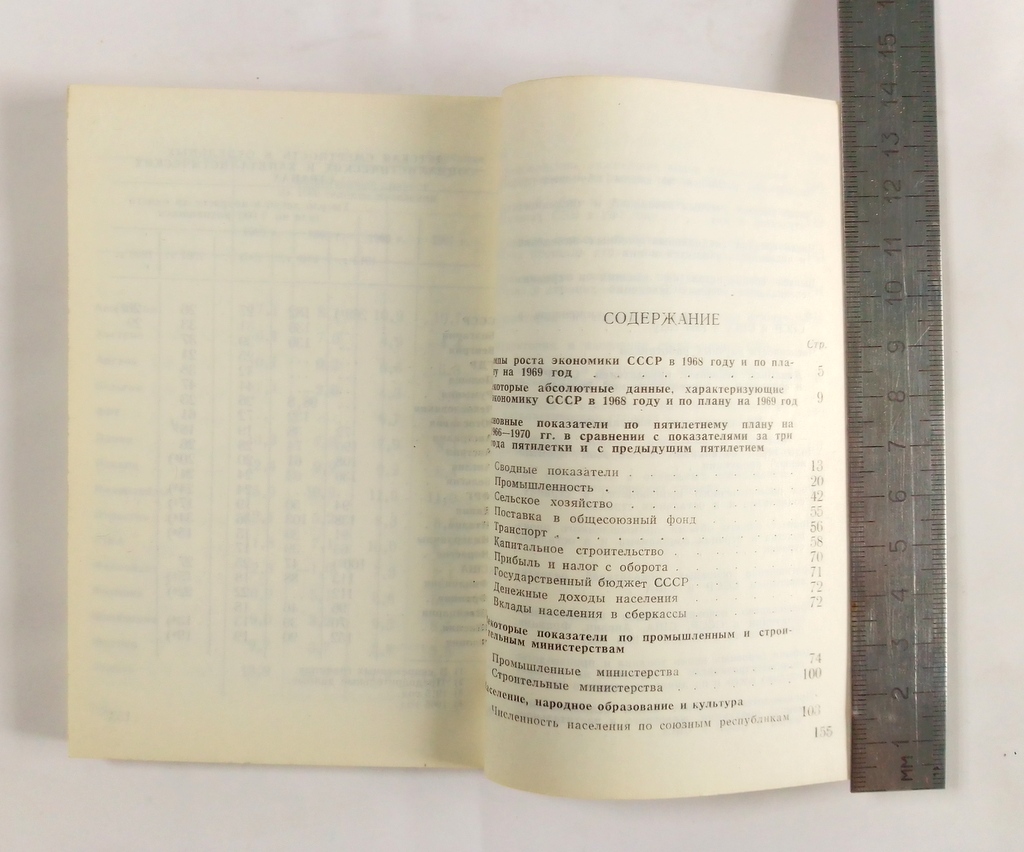 СОДЕРЖАНИЕ
Стр.
роста экономики СССР в 1968 году и по пла-
ну на 1969 год . . . . . . . . 5
екоторые абсолютные данные, характеризующие
экономику СССР в 1968 году и по плану на 1969 год 9
сновные показатели по пятилетнему плану на
966—1970 гг. в сравнении с показателями за три
ода пятилетки и с предыдущим пятилетием
Сводные показатели . . . . . . . 13
Промышленность . . . . . . . . 20
Сельское хозяйство . . . . . . . 42
Поставка в общесоюзный фонд . . . . 55
Транспорт . . . . . . . . . 56
Капитальное строительство . . . . . 58
Прибыль и налог с оборота . . . . . 70
Государственный бюджет СССР . . . . 71
Денежные доходы населения . . . . . 72
Вклады населения в сберкассы . . . . 72
екоторые показатели по промышленным и строи-
тельным министерствам
Промышленные министерства . . . . . 74
Строительные министерства . . . . . 100
аселение, народное образование и культура
Численность населения по союзным республикам 103
155
мм 1 2 3 4 5 6 7 8 9 10 11 12 13 14 15